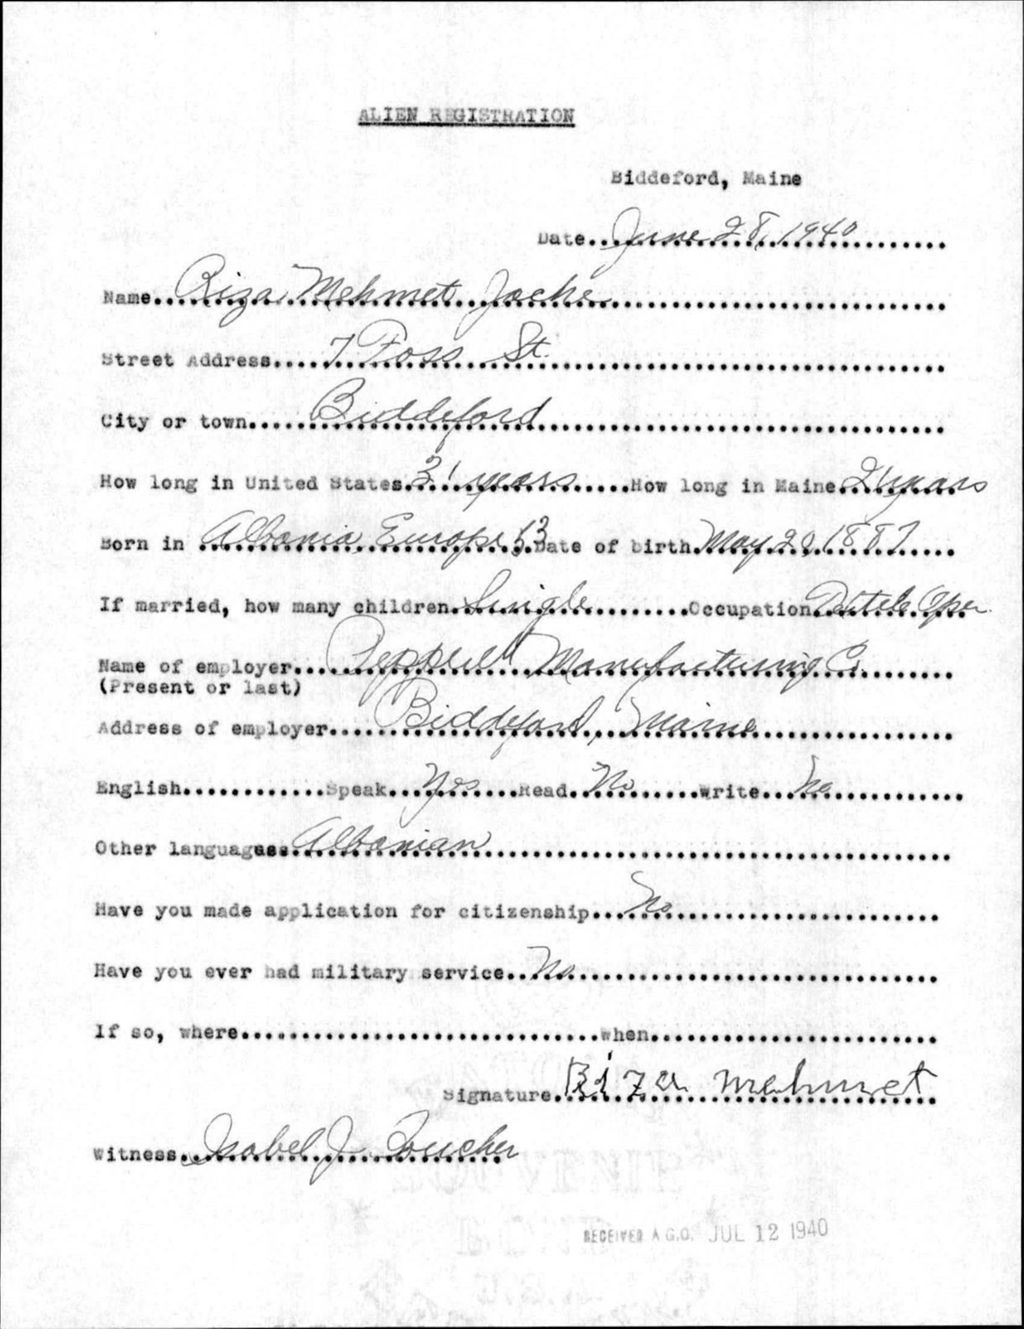 ALIEN REGISTRATION
Biddeford, Maine
Date..June 28, 1940
Name..Riza Mehmet
Street Address....7 Foss St.
City or town....Biddeford
How long in United States.. years.....How long in Maine.. years
Born in ..Albania Europe 53.Date of birth.May 20 1887
If married, how many children.Single........Occupation. Oper.
Name of employer...Pepperell Manufacturing Co.
(Present or last)
Address of employer....Biddeford, Maine
English............Speak..Yes....Read..No.......Write..No
Other languagues..Albanian
Have you made application for citizenship...No
Have you ever had military service..No
If so, where..............................when
Signature.Riza mehmet
Witness..Isabel J.
RECEIVED A.G.O. JUL 12 1940